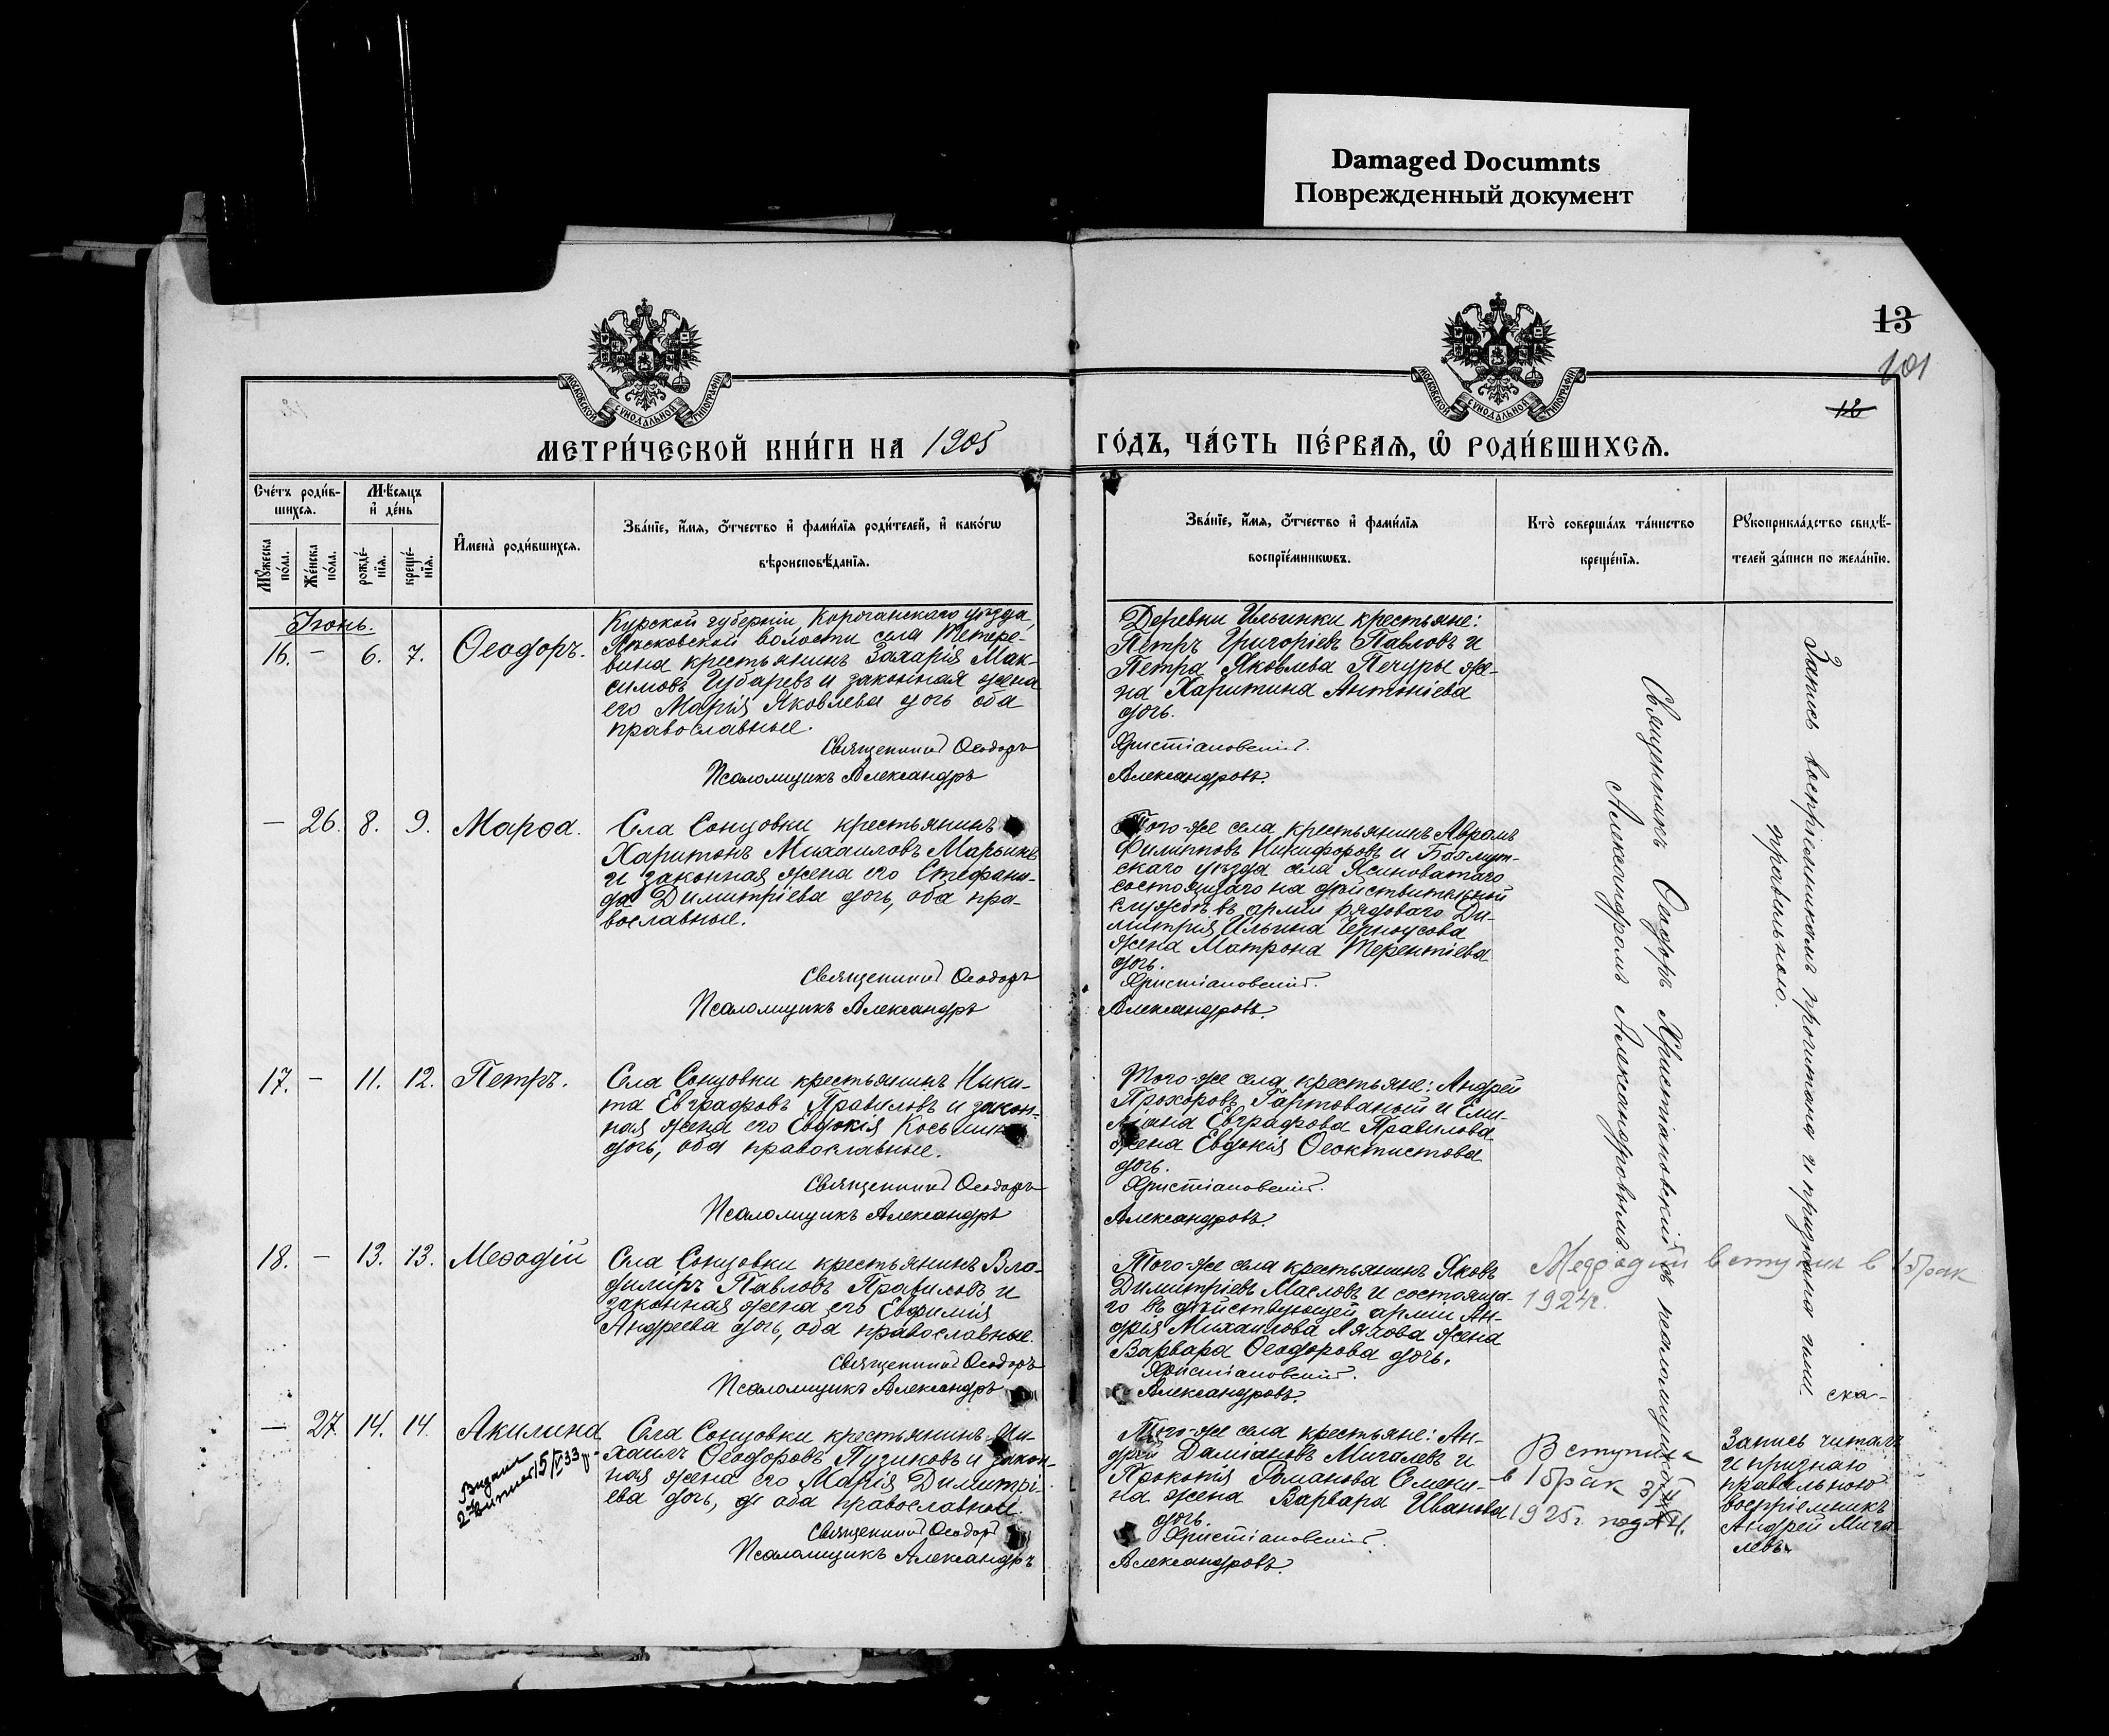 Damaged Documnts
Поврежденный документ
13
101
12
МОСКОВСКОЙ СѴНОДАЛЬНОЙ ТИПОГРАФІИ
МОСКОВСКОЙ СѴНОДАЛЬНОЙ ТИПОГРАФІИ
МЕТРИ́ЧЕСКОЙ КНИ́ГИ НА 1905
ГО́ДЪ, ЧА́СТЬ ПЕ́РВАѦ, Ѡ҆ РОДИ́ВШИХСѦ.
Сче́тъ роди́в-
шихсѧ.
Мѣ́сѧцъ
и҆ де́нь
Мꙋ́жеска
по́ла.
Же́нска
по́ла.
рожде́-
нїѧ.
креще́-
нїѧ.
И҆мена̀ роди́вшихсѧ.
Зва́нїе, и҆́мѧ, ѻ҆́тчество и҆ фами́лїѧ роди́телей, и҆ како́гѡ
вѣроисповѣ́данїѧ.
Зва́нїе, и҆́мѧ, ѻ҆́тчество и҆ фами́лїѧ
воспрїе́мникѡвъ.
Кто̀ соверша́лъ та́инство
креще́нїѧ.
Рꙋкоприкла́дство свидѣ́-
телей за́писи по жела́нїю.
Іюнь.
16. – 6. 7. Ѳеодоръ.
Курской губерніи, Корочанскаго уѣзда,
волости села Тетере-
вина крестьянинъ Захарія Мак-
симовъ Губаревъ и законная жена
его Марія Яковлева дочь оба
православные.
Священникъ Ѳеодоръ
Псаломщикъ Александръ
Деревни Ильинки крестьяне:
Петръ Григоріевъ Павловъ и
Петра Яковлева Печуры же-
на Харитина Антоніева
дочь.
Христіановскій.
Александровъ.
– 26. 8. 9. Марѳа.
Села Сонцовки крестьянинъ
Харитонъ Михаиловъ Марьинъ
и законная жена его Стефани-
да Димитріева дочь, оба пра-
вославные.
Священникъ Ѳеодоръ
Псаломщикъ Александръ
Того-же села крестьянинъ Аврамъ
Филипповъ Никифоровъ и Бахмут-
скаго уѣзда села Ясиноватаго
состоящаго на дѣйствительной
службѣ въ арміи рядоваго Ди-
митрія Ильина Черноусова
жена Матрона Терентіева
дочь.
Христіановскій.
Александровъ.
17. – 11. 12. Петръ.
Села Сонцовки крестьянинъ Ники-
та Евграфовъ Правиловъ и закон-
ная жена его Евдокія Косьмина
дочь, оба православные.
Священникъ Ѳеодоръ
Псаломщикъ Александръ
Того-же села крестьяне: Андрей
Прохоровъ Гартованый и Еми-
ліана Евграфова Правилова
жена Евдокія Ѳеоктистова
дочь.
Христіановскій.
Александровъ.
18. – 13. 13. Меѳодій
Села Сонцовки крестьянинъ Вла-
димиръ Павловъ Правиловъ и
законная жена его Евфимія
Андреева дочь, оба православные.
Священникъ Ѳеодоръ
Псаломщикъ Александръ
Того-же села крестьянинъ Яковъ
Димитріевъ Масловъ и состояща-
го въ дѣйствующей арміи Ан-
дрія Михаилова Ляхова жена
Варвара Ѳеодорова дочь.
Христіановскій.
Александровъ.
Мефодий вступил в 1 брак
1924г.
– 27. 14. 14. Акилина
Видана
15/V 33 р.
Села Сонцовки крестьянинъ Ми-
хаилъ Ѳеодоровъ Пузиковъ и закон-
ная жена его Марія Димитрі-
ева дочь, оба православные.
Священникъ Ѳеодоръ
Псаломщикъ Александръ
Того-же села крестьяне: Ан-
дрей Даміановъ Мигалевъ и
Прокопія Романова Семеки-
на жена Варвара Иванова
дочь.
Христіановскій.
Александровъ.
Вступила
в 1 брак
1925г.
Священникъ Ѳеодоръ Христіановскій съ псаломщикомъ
Александромъ Александровымъ.
Запись воспріемникамъ прочитана и признана ими
правильною.
ска-
Запись читалъ
и признаю
правильною
воспріемникъ
Андрей Мига-
левъ